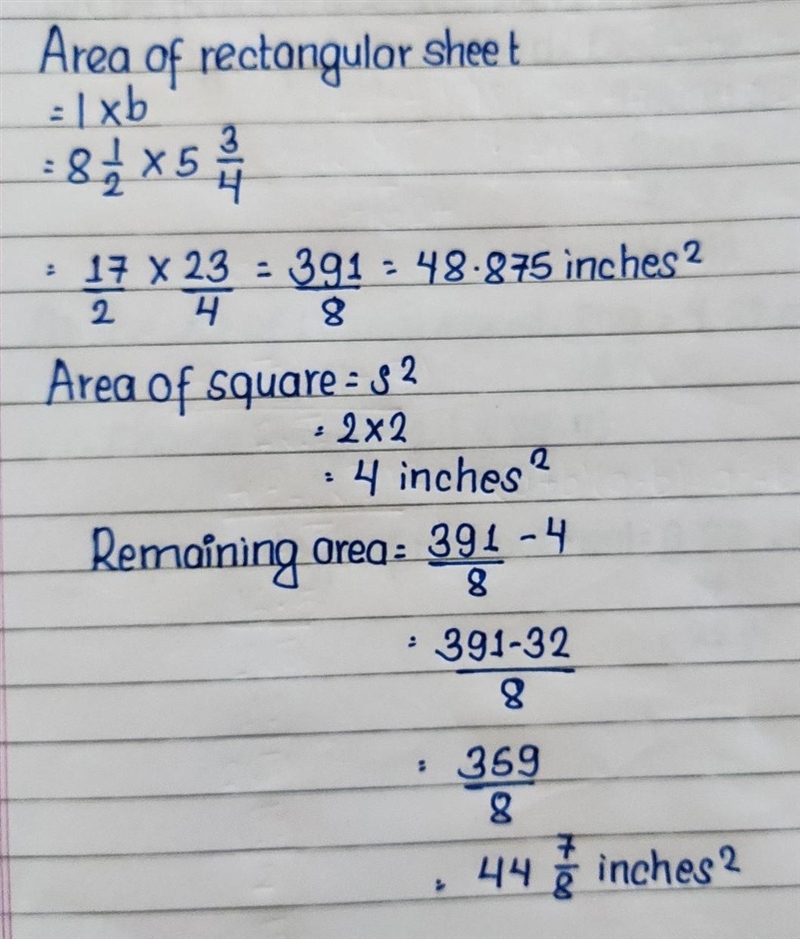 Area of rectangular sheet
= l x b
= 8 1/2 x 5 3/4
= 17/2 x 23/4 = 391/8 = 48.875 inches²
Area of square = s²
= 2x2
= 4 inches²
Remaining area = 391/8 - 4
= 391-32/8
= 359/8
= 44 7/8 inches²